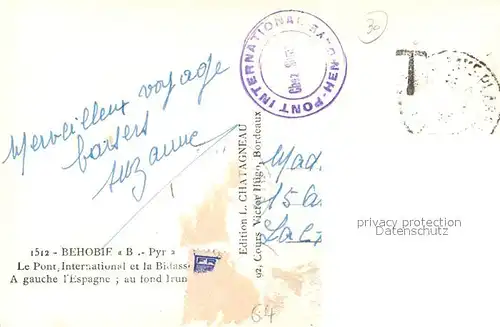 Merveilleux voyage
baisers
Suzanne
1512 - BEHOBIE a B .- Pyr
Le Pont International et la Bidass
A gauche l'Espagne ; au fond Irun
Edition L. CHATAGNEAU
92, Cours Victor Hugo, Bordeaux
PONT INTERNATIONAL
Chez
30
T
Mad
15 A
privacy protection
for Madress
64